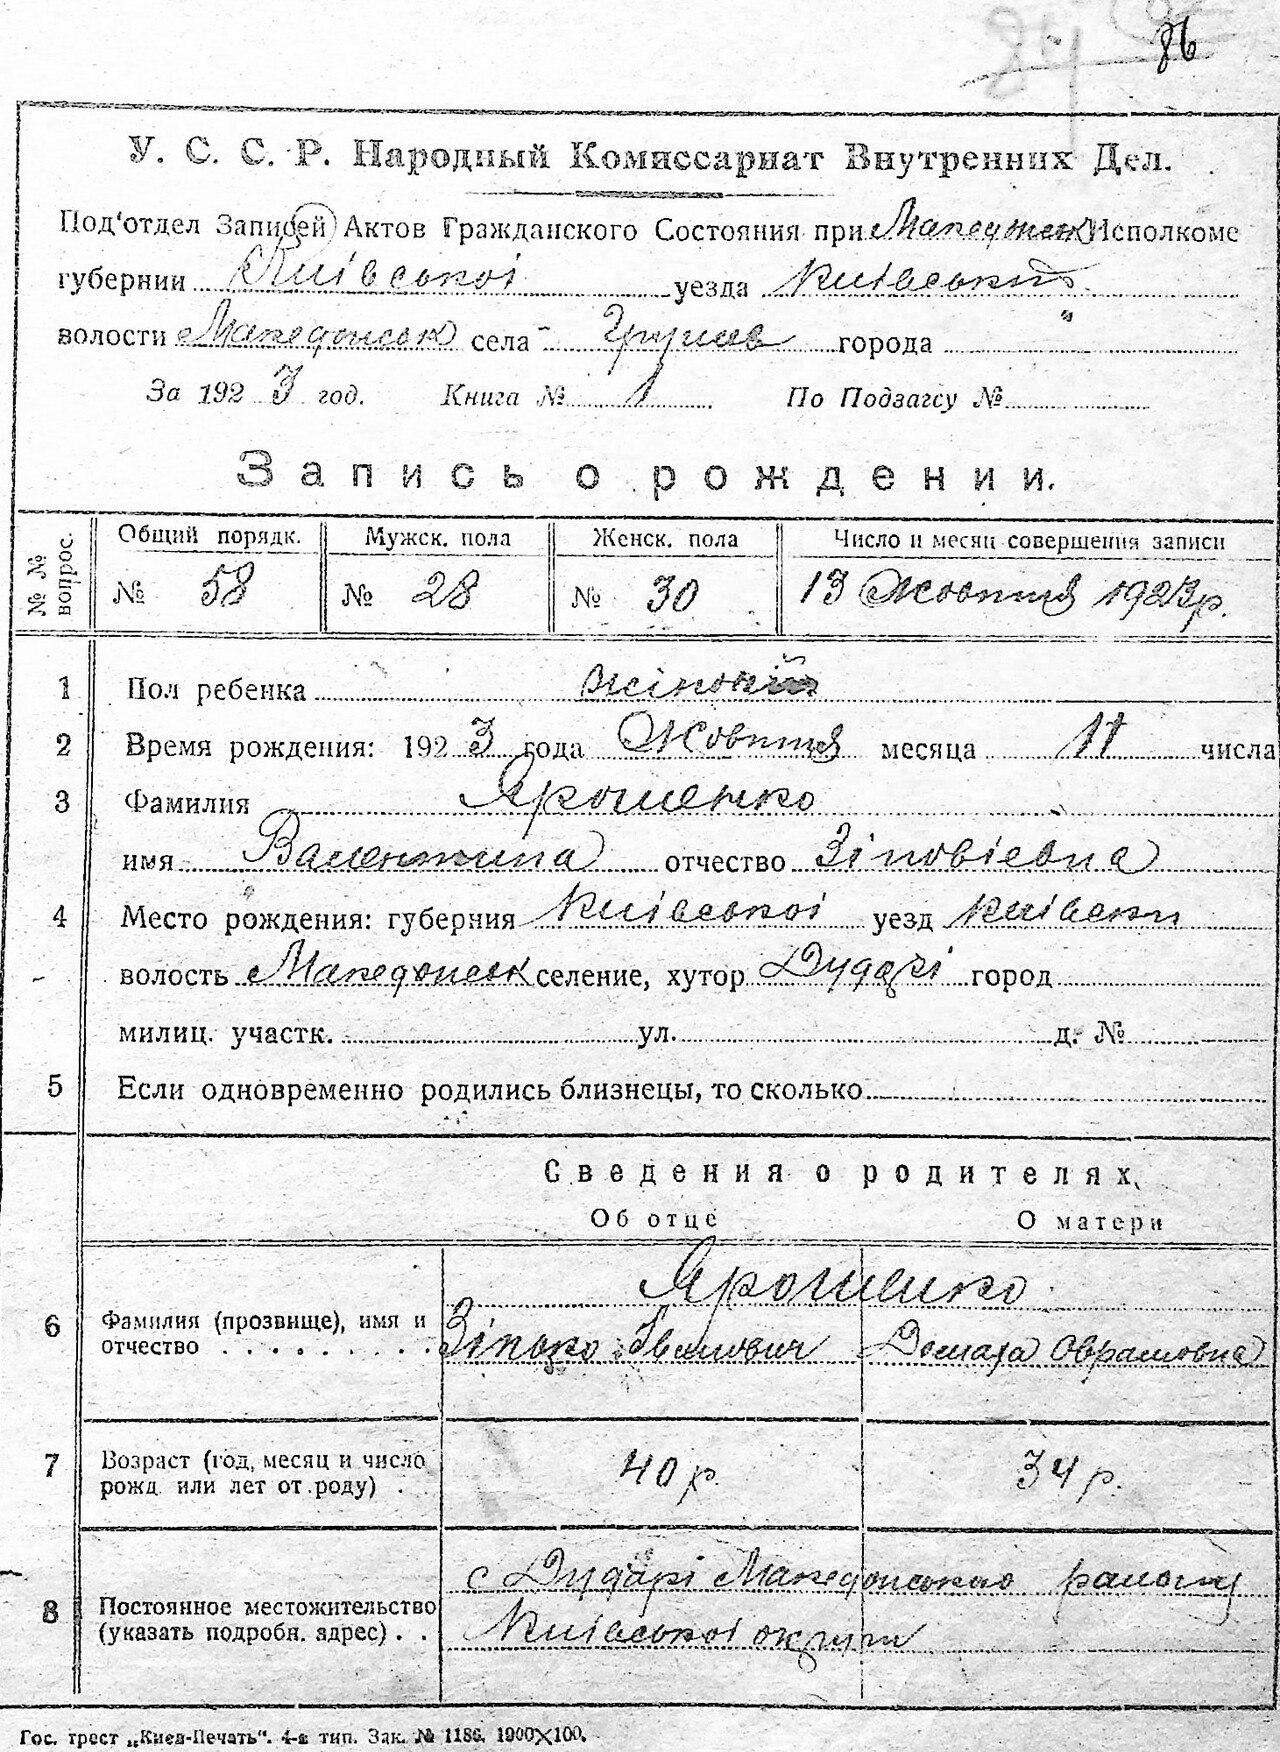 86
У. С. С. Р. Народный Комиссариат Внутренних Дел.
Под'отдел Записей Актов Гражданского Состояния при Македонск Исполкоме
губернии Київської уезда Київський
волости Македонськ села Грушев города "
За 1923 год. Книга № 1 По Подзагсу №
Запись о рождении.
№ № вопрос. Общий порядк. Мужск. пола Женск. пола Число и месяц совершения записи
№ 58 № 28 № 30 13 Жовтня 1923 р.
1 Пол ребенка жіночий
2 Время рождения: 1923 года Жовтня месяца 11 числа
3 Фамилия Ярошенко
имя Валентина отчество Зіновіевна
4 Место рождения: губерния Київської уезд Київськи
волость Македонськ селение, хутор Дударі город
милиц. участк. ул. д. №
5 Если одновременно родились близнецы, то сколько
Сведения о родителях
Об отце О матери
Ярошенко
6 Фамилия (прозвище), имя и
отчество Зінько Іванович Домаха Оврамовна
7 Возраст (год, месяц и число
рожд. или лет от роду) . 40 р. 34 р.
с Дударі Македонського району
8 Постоянное местожительство
(указать подробн. адрес) . . Київської округи
Гос. трест „Киев-Печать“. 4-я тип. Зак. № 1186. 1900×100.